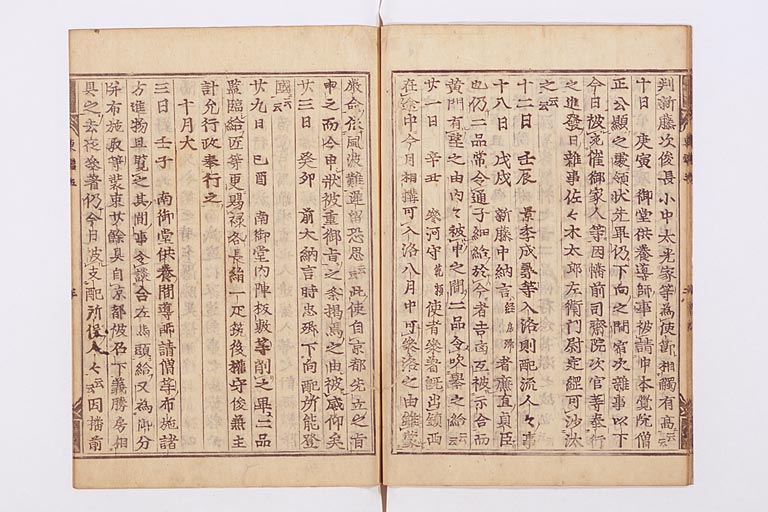 判新藤次俊長小中太光家等為使節相觸有高云云
十日 庚寅 御堂供養導師事被請申本覺院僧
正公顯之處領状先畢仍下向之間宿次雜事以下
今日被充催御家人等因幡前司齋院次官等奉行
之進發日雜事佐々木太郎左衛門尉定綱可沙汰
之云云
十二日 壬辰 景李成景等入洛則配流人々事
十八日 戊戌 新藤中納言經房卿者廉直貞臣
也仍二品常令通子細給於今者吉凶互被示合而
黄門有望之由内々被申之間二品令吹擧之給云云
廿一日 辛丑 參河守範頼使者參著既出鎮西
在途中今月相搆可入洛八月中可參洛之由雖蒙
嚴命依風波難遲留恐思云云此使自京都先立之旨
申之而今申状被重御旨之条掲焉之由被感仰矣
廿三日 癸卯 前大納言時忠卿下向配所能登
國云云
廿九日 己酉 南御堂内陣板敷等削之畢二品
監臨給匠等更賜祿各長絹一疋筑後權守俊兼主
計允行政奉行之
十月大
三日 壬子 南御堂供養間導師請僧等布施諸
方進物且覽之其間事令談合在悲頭給又為御分
與布施取等裝束廿餘具自京都被召下義勝房相
具之去夜參著仍今日被支配所役人々云云因幡前